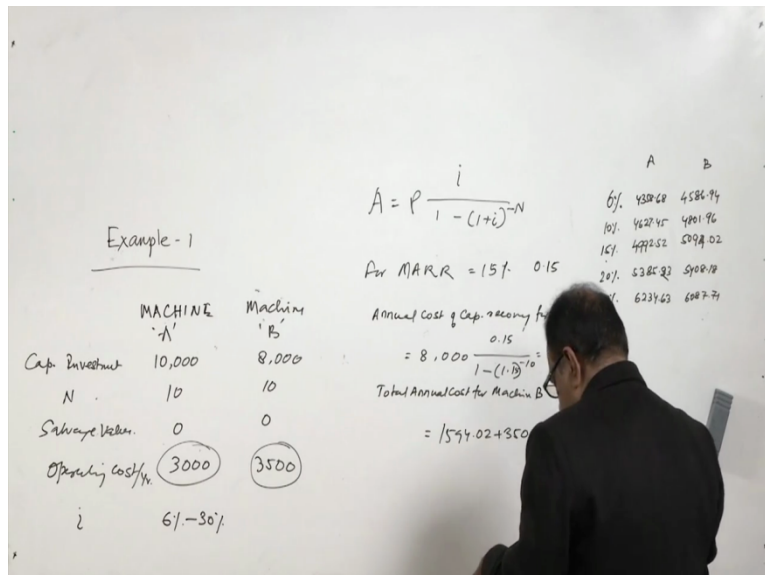 Example - 1
MACHINE 'A' Machine 'B'
Cap. Investment 10,000 8,000
N 10 10
Salvage Value. 0 0
Operating Cost/Yr. 3000 3500
i 6% - 30%
A = P i / 1 - (1+i)^-N
for MARR = 15% 0.15
Annual Cost of Cap. recovery
= 8,000 0.15 / 1 - (1.15)^-10 =
Total Annual Cost for Machine B
= 1594.02 + 350
A B
6% 4358.68 4586.94
10% 4627.45 4801.96
15% 4992.52 5094.02
20% 5385.23 5408.18
6234.63 6087.71